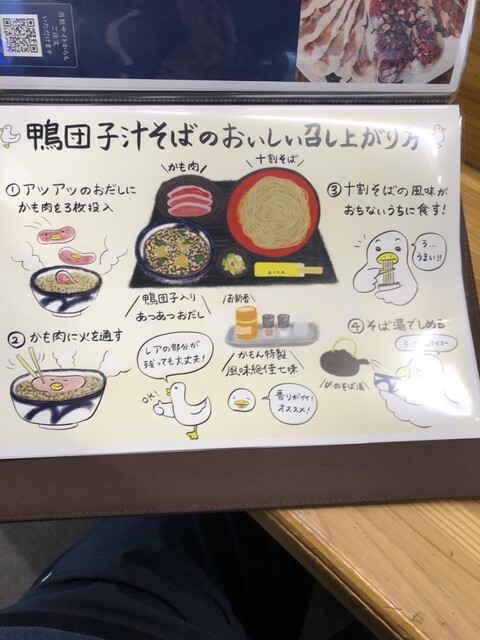 当社サイトからも
ご注文
いただけます
鴨団子汁そばのおいしい召し上がり方
かも肉
十割そば
①アツアツのおだしに
かも肉を3枚投入
③十割そばの風味が
おちないうちに食す!
う…
うまい!!
鴨団子入り
あつあつおだし
お新香
②かも肉に火を通す
レアの部分が
残っても大丈夫!
OK!
かもん特製
風味絶佳七味
香りがイイ!
オススメ!
④そば湯でしめる
〆のそば湯